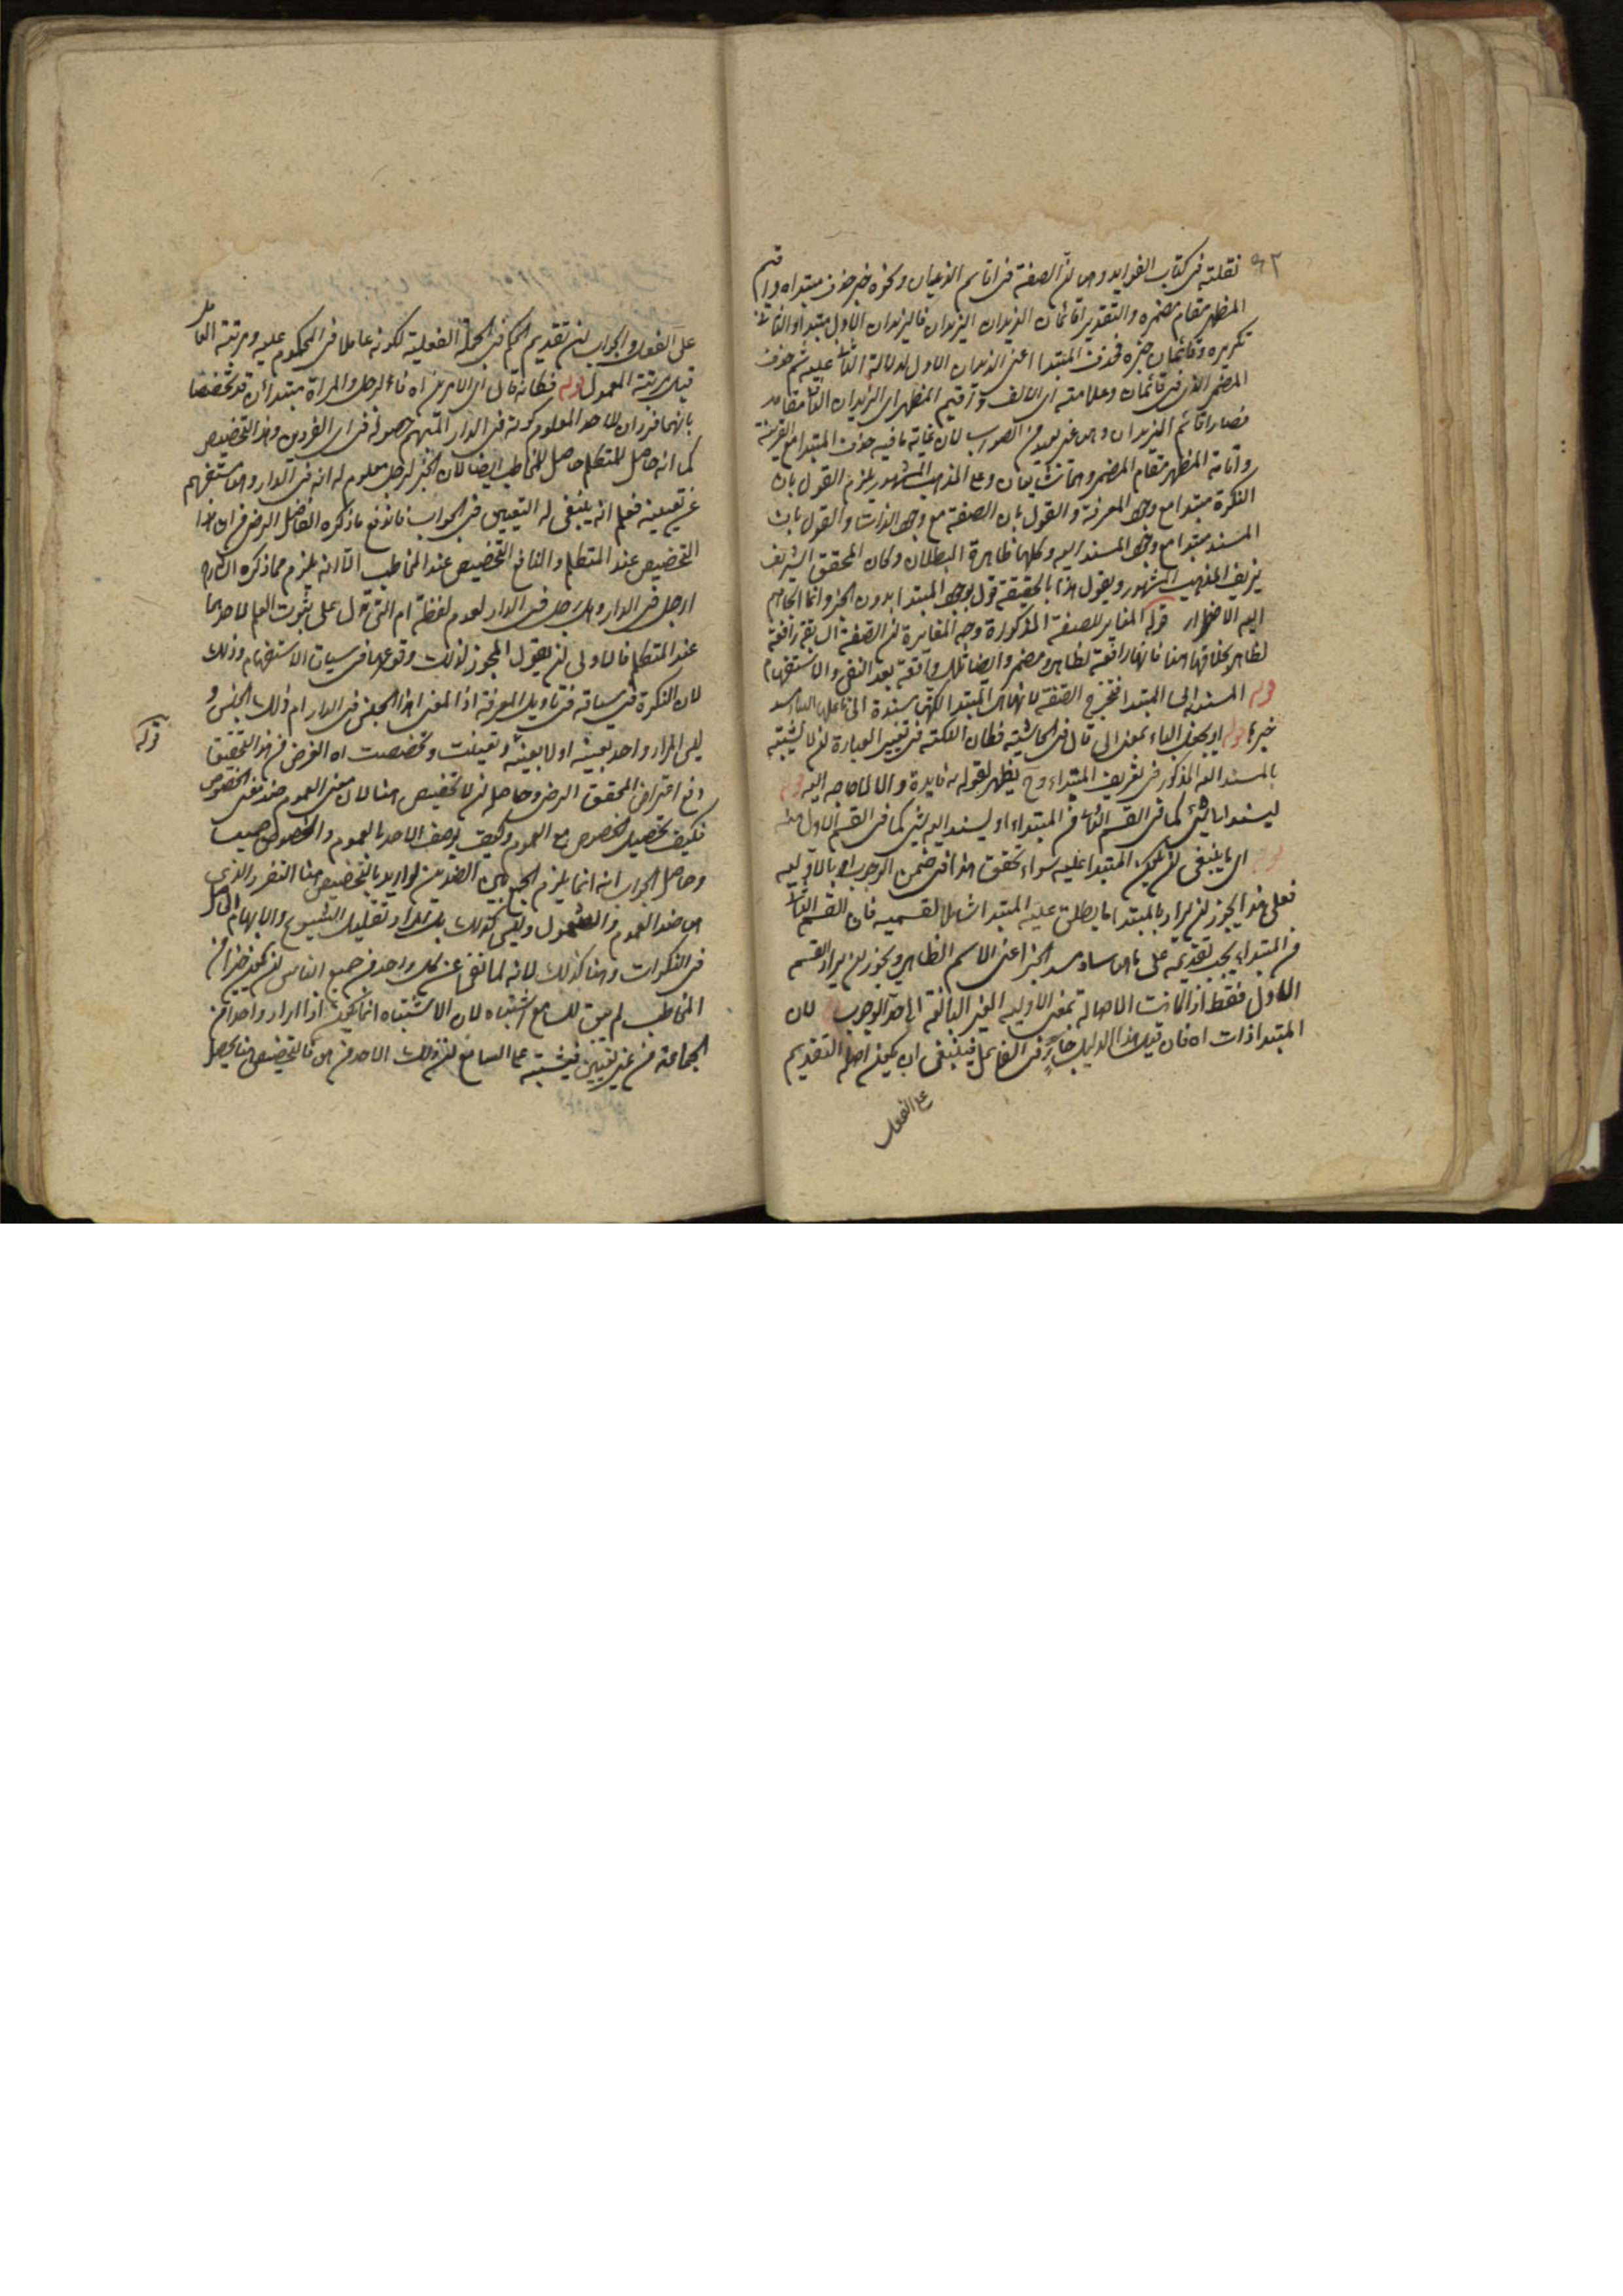 نقلته فى كتاب الفوايد وهى ان الصفة فى اقائم الزيدان ونحوه خبر حذف مبتداه واقيم
المظهر مقام مضمره والتقدير اقائمان الزيدان الزيدان فالزيدان الاول مبتدأ والثانى
تكريره وقائمان خبره فحذف المبتدا اعنى الزيدان الاول لدلالة الثانى عليه ثم حذف
المضمر الذى فى قائمان وعلامته اى الالف واقيم المظهر اى الزيدان الثانى مقامه
فصار اقائم الزيدان وهى غير بعيد من الصواب لان غاية ما فيه حذف المبتدا مع القرينة
واقامة المظهر مقام المضمر وهما شايعان وعلى المذهب المشهور يلزم القول بان
النكرة مبتدا مع وجود المعرفة والقول بان الصفة مع وجود الذات والقول بان
المسند مبتدا مع وجود المسند اليه وكلها ظاهرة البطلان وكان المحقق الشريف
يزيف المذهب المشهور ويقول هذا بالحقيقة قول بوجود المبتدا بدون الخبر وانما الجاهم
اليه الاضطرار قوله المغاير للصفة المذكورة وجه المغايرة ان الصفة السابقة رافعة
لظاهر بخلافها هنا فانها رافعة لظاهر ومضمر وايضا تلك واقعة بعد النفى والاستفهام
قوله المسند الى المبتدا فتخرج الصفة لانها هى المبتدا لكنها مسندة الى فاعلها الساد مسد
خبرها قوله او يجعل الباء بمعنى الى قال فى الحاشية فكان النكتة فى تغيير العبارة ان لا يشتبه
بالمسند اليه المذكور فى تعريف المبتداء وح يظهر لقوله به فايدة والا لا حاجة اليه قوله
ليسند الى شئ كما فى القسم الثانى من المبتداء او ليسند اليه شئ كما فى القسم الاول منه
اى ما ينبغى ان يكون المبتدا عليه سواء تحقق هذا فى ضمن الوجوب او بالاولية
فعلى هذا يجوز ان يراد بالمبتدا ما يطلق عليه المبتدا شاملا لقسميه فان القسم الثانى
من المبتداء يجب تقديمه على ما هو ساد مسد الخبر اعنى الاسم الظاهر ويجوز ان يراد القسم
الاول فقط اذا كانت الاصالة بمعنى الاولية الغير البالغة الى حد الوجوب لان
المبتدا ذات اه فان قيل هذا الدليل جار فى الفاعل فينبغى ان يكون اصله التقديم
على الفعل
على الفعل والجواب ان تقديم الحكم فى الجملة الفعلية لكونه عاملا فى المحكوم عليه ومرتبة العامل
قبل مرتبة المعمول قوله فكانه قال اى الامرين اه فاء لرجل والمراة مبتدأن قد تخصصا
بانهما فردان للاحد المعلوم كونه فى الدار المتهم حصوله فى اى الفردين وهذا التخصيص
كما انه حاصل للمتكلم حاصل للمخاطب ايضا لان الخبر لرجل معلوم له انه فى الدار وهو استفهم
عن تعيينه فعلم انه ينبغى له التعيين فى الجواب فاندفع ما ذكره الفاضل الرضى من ان هذا
التخصيص عند المتكلم والنافع التخصيص عند المخاطب الا انه يلزم مما ذكره الشارح
ارجل فى الدار وهل رجل فى الدار لعدم لفظة ام التى تدل على ثبوت العلم لاحدهما
عند المتكلم فالاولى ان يقول المجوز لذلك وقوعها فى سياق الاستفهام وذلك
لان النكرة فى سياقه فى تاويل المعرفة اذ المعنى اهذا الجنس فى الدار ام ذلك الجنس و
ليس المراد واحد بعينه او لا بعينه قوله تعينت وتخصصت اه الغرض من هذا التحقيق
دفع اعتراض المحقق الرضى وحاصله ان لا تخصيص هنا لان معنى العموم ضد معنى الخصوص
فكيف يحصل الخصوص مع العموم وكيف يوصف الاحد بالعموم والخصوص جميعا
وحاصل الجواب انه انما يلزم الجمع بين الضدين لو اريد بالتخصيص هنا التفرد الذى
هو ضد العموم والشمول وليس كذلك بل المراد تقليل الشيوع والابهام الحاصل
فى النكرات وهنا كذلك لانه لما نفى عن كل واحد من جميع الناس ان يكون خيرا من
المخاطب لم يبق للسامع اشتباه لان الاشتباه انما يكون اذا اراد واحدا من
الجماعة من غير تعيين فيشتبه على السامع ان ذلك الاحد من هو فالتخصيص هنا يحصل
قوله